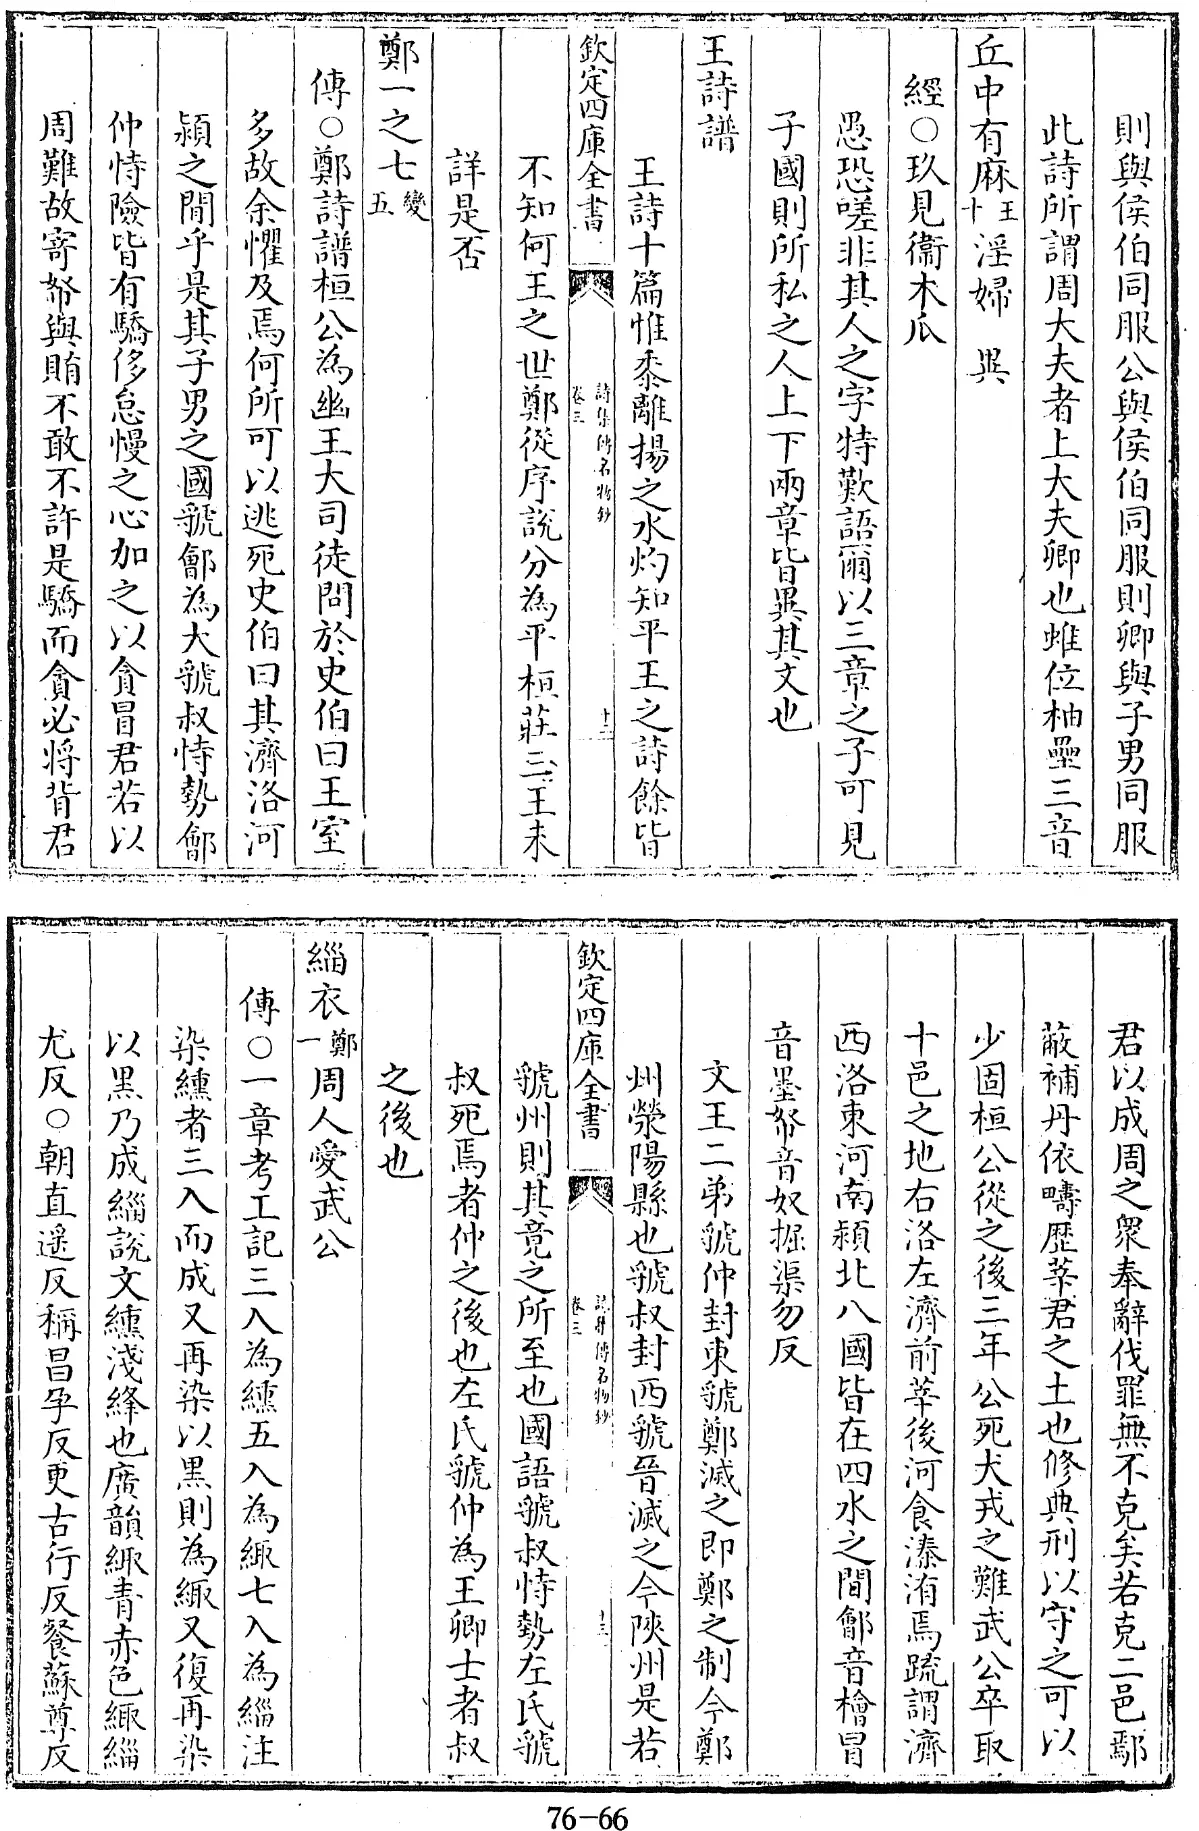 則與侯伯同服公與侯伯同服則卿與子男同服
此詩所謂周大夫者上大夫卿也雖位柚壘三音
丘中有麻王十淫婦 㒷
經○玖見衞木瓜
愚恐嗟非其人之字特歎語爾以三章之子可見
子國則所私之人上下兩章皆異其文也
王詩譜
王詩十篇惟黍離揚之水灼知平王之詩餘皆
欽定四庫全書 詩集傳名物鈔 卷三 十二
不知何王之世鄭從序說分為平桓莊三王未
詳是否
鄭一之七變五
傳○鄭詩譜桓公為幽王大司徒問於史伯曰王室
多故余懼及焉何所可以逃死史伯曰其濟洛河
潁之間乎是其子男之國虢鄶為大虢叔恃勢鄶
仲恃險皆有驕侈怠慢之心加之以貪冒君若以
周難故寄帑與賄不敢不許是驕而貪必將背君
君以成周之衆奉辭伐罪無不克矣若克二邑鄢
蔽補丹依疇歷莘君之土也修典刑以守之可以
少固桓公從之後三年公死犬戎之難武公卒取
十邑之地右洛左濟前莘後河食溱洧焉疏謂濟
西洛東河南潁北八國皆在四水之間鄶音檜冒
音墨帑音奴掘渠勿反
文王二弟虢仲封東虢鄭滅之即鄭之制今鄭
州滎陽縣也虢叔封西虢晉滅之今陜州是若
欽定四庫全書 詩集傳名物鈔 卷三 十三
虢州則其竟之所至也國語虢叔恃勢左氏虢
叔死焉者仲之後也左氏虢仲為王卿士者叔
之後也
緇衣鄭一周人愛武公
傳○一章考工記三入為纁五入為緅七入為緇注
染纁者三入而成又再染以黑則為緅又復再染
以黑乃成緇說文纁淺絳也廣韻緅青赤色緅緇
尤反○朝直遥反稱昌孕反更古行反餐蘇尊反
76-66